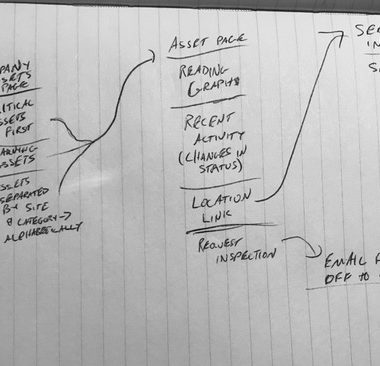 PANY
SSETS
PAGE
ITICAL
SSETS
FIRST
ARNING
ASSETS
ASSETS
SEPARATED
BY SITE
& CATEGORY →
ALPHABETICALLY
ASSET PAGE
READING
GRAPHS
RECENT
ACTIVITY
(CHANGES IN
STATUS)
LOCATION
LINK
REQUEST
INSPECTION
SE
IN
S
EMAIL
OFF TO